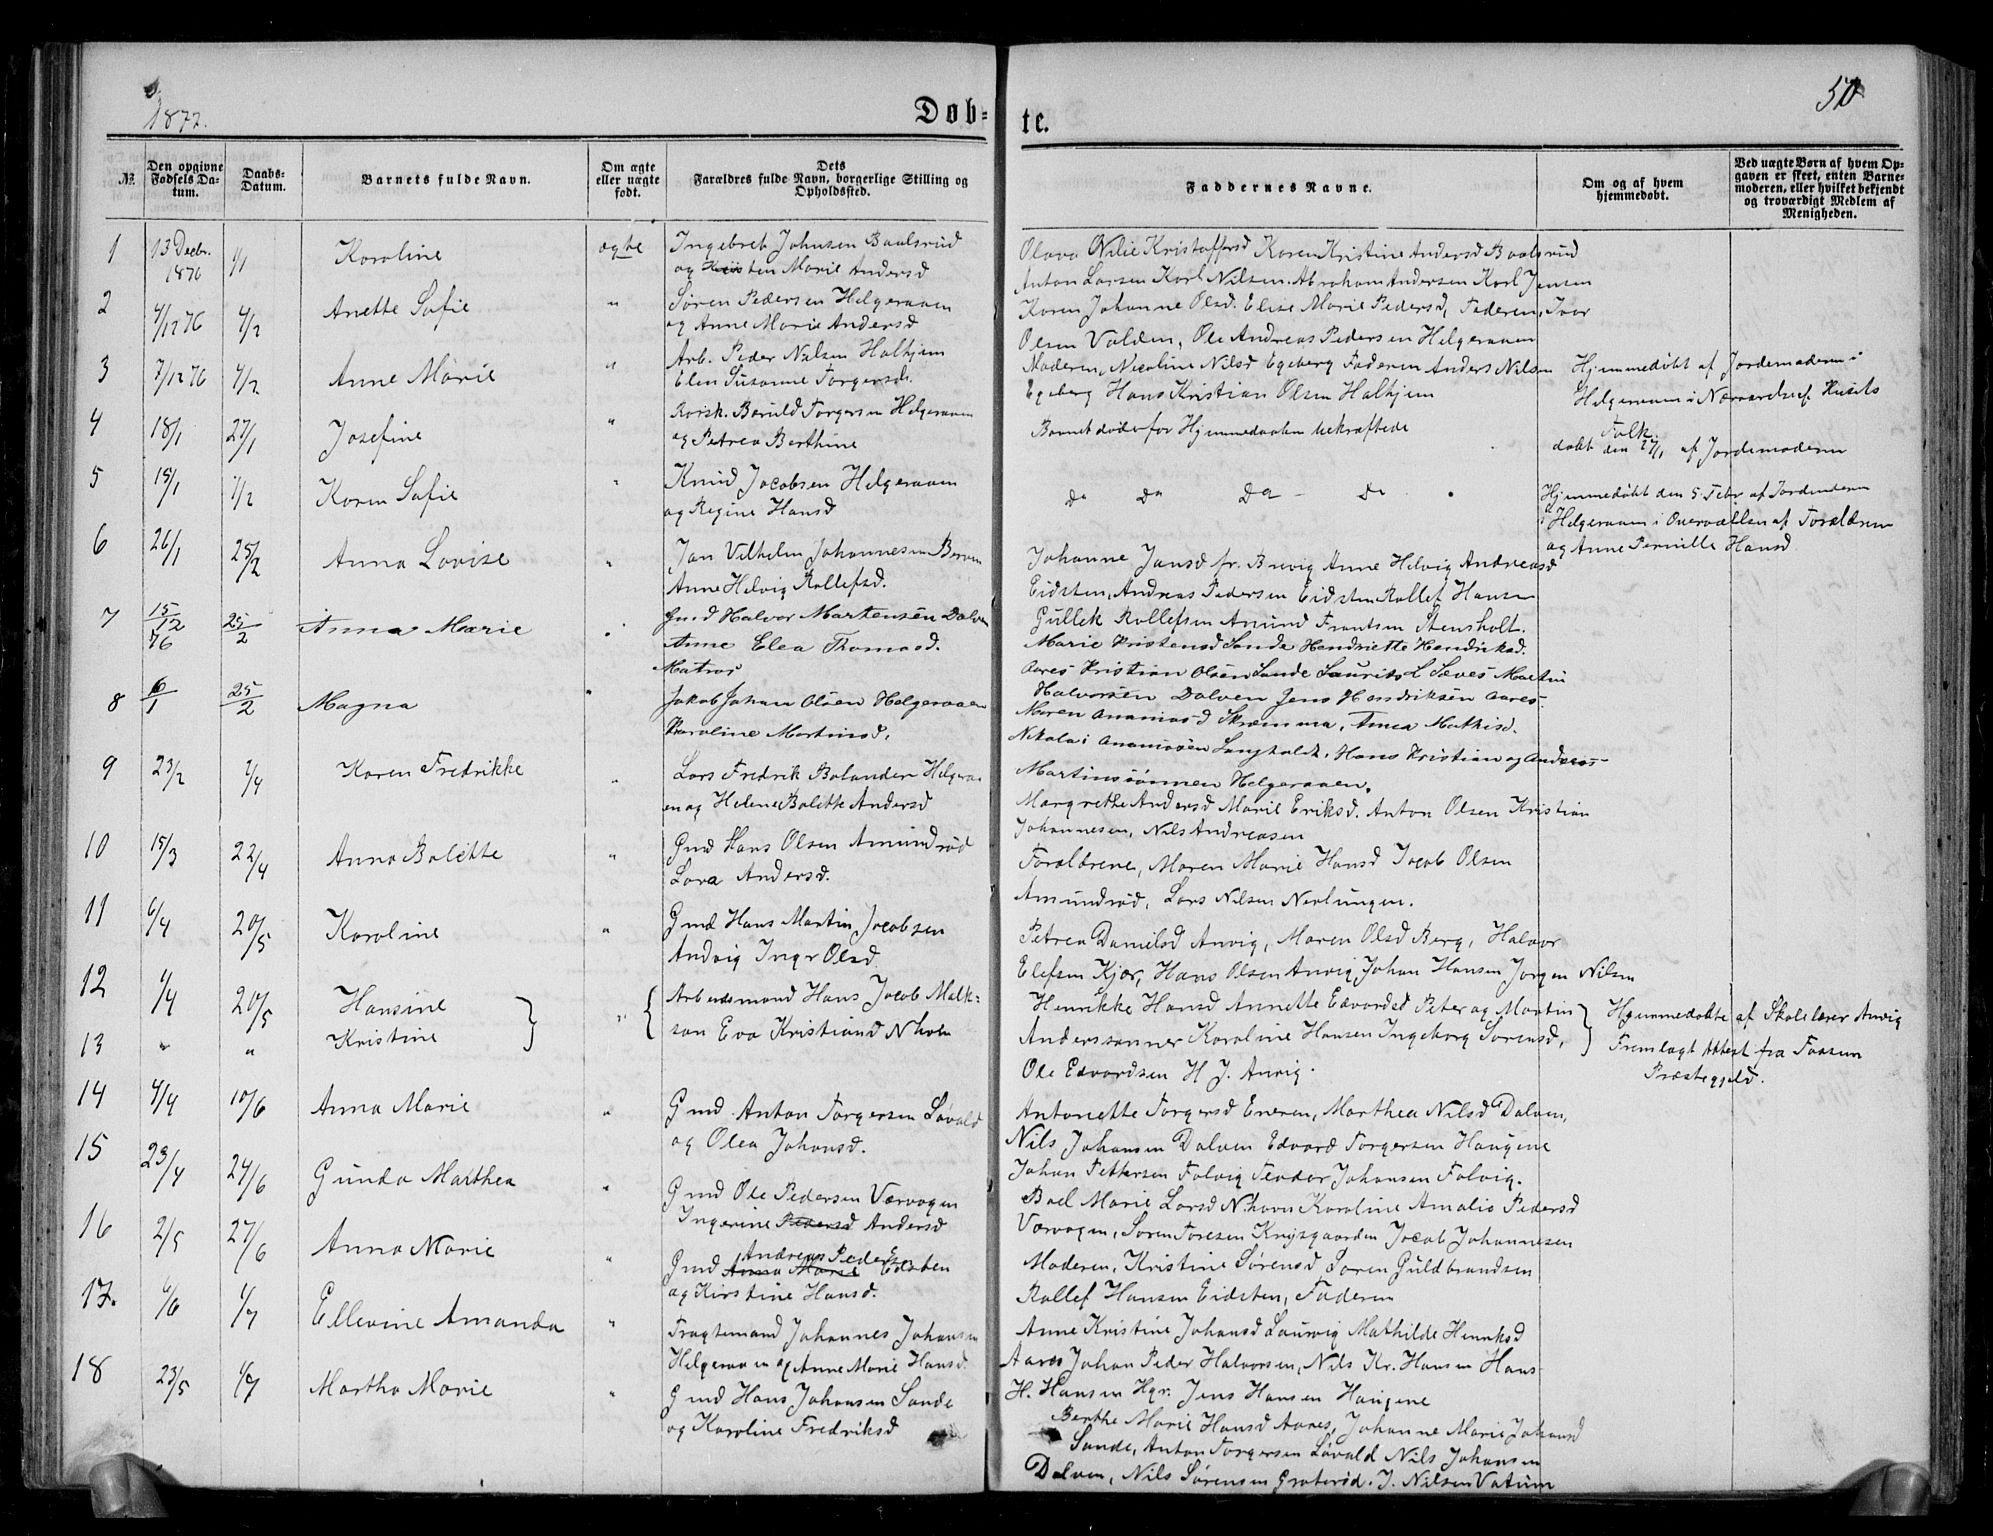 1877.
Døb-
te.
50
№
Den opgivne Fødsels Datum.
Daabs-Datum.
Barnets fulde Navn.
Om ægte eller uægte født.
Dets Forældres fulde Navn, borgerlige Stilling og Opholdssted.
Faddernes Navne.
Om og af hvem hjemmedøbt.
Ved uægte Børn af hvem Opgaven er skeet, enten Barnemoderen, eller hvilket bekjendt og troværdigt Medlem af Menigheden.
1 13 Decbr. 1876 1/1 Karoline ægte Ingebret Johnsen Baalsrud
og Kristen Marie Andersd
Olava Nilie Kristoffersd Karen Kristine Andersd Baalsrud
Anton Larsen Karl Nilsen Abraham Andersen Karl Jensen
2 4/12 76 4/2 Anette Sofie " Søren Pedersen Helgeraaen
og Anne Marie Andersd
Karen Johanne Olsd. Elise Marie Pedersd, Faderen, Ivar
Olsen Valden, Ole Andreas Pedersen Helgeraaen
3 7/12 76 4/2 Anne Marie " Arb. Peder Nilsen Halhjem
Elen Susanne Torgersd.
Moderen, Nicoline Nilsd Egeberg Faderen Anders Nilsen
Egeberg Hans Kristian Olsen Halhjem
Hjemmedøbt af Jordemoderen i
Helgeraaen i Nærværelse af Husets
Folk.
4 18/1 27/1 Josefine " Beruld Torgersen Helgeraaen
og Petrea Berthine
Barnet døde før Hjemmedaaben bekræftede
døbt den 27/1 af Jordemoderen
5 15/1 1/2 Karen Sofie " Knud Jacobsen Helgeraaen
og Regine Hansd
Do Do Do - Do .
Hjemmedøbt den 5 Febr af Jordemoderen
i Helgeraaen i Overværelse af Forældrene
og Anne Pernille Hansd
6 26/1 25/2 Anna Lovise " Jan Vilhelm Johannesen
Anne Helvig Rollefsd.
Johanne Jansd fr. Brevig Anne Helvig Andreasd
Eidsten, Andreas Pedersen Eidsten Rollef Hansen
Gullek Rollefsen Amund Frantsen Stensholt.
7 15/12 76 25/2 Anna Marie " Gmd Halvor Martensen Dalven
Anne Elea Thomasd.
Marie Kristensd Sande Hendriette Hendriksd.
Aares Kristian Olsen Sande Laurits L Seves Martin
Halvorsen Dalven Jens Hendriksen Aares-
8 6/1 25/2 Magna " Matros
Jakob Johan Olsen Helgeraaen
Karoline Martinsd.
Maren Ananiasd Skremma, Anna Mathisd.
Nikolai Ananiasen Langholdt, Hans Kristian og Andreas-
Martinssønnen Helgeraaen.
9 23/2 2/4 Karen Fredrikke " Lars Fredrik Bolander Helgeraa-
en og Helene Bolette Andersd
Margrethe Andersd Marie Eriksd. Anton Olsen Kristian
Johannesen, Nils Andreasen
10 15/3 22/4 Anna Bolette " Gmd Hans Olsen Amundrød
Lara Andersd.
Forældrene, Maren Marie Hansd Jacob Olsen
Amundrød, Lars Nilsen Nevlungen.
11 6/4 20/5 Karoline " Gmd Hans Martin Jacobsen
Andvig Ingr Olsd
Petrea Danielsd Anvig, Maren Olsd Berg, Halvor
Elefsen Kjær, Hans Olsen Anvig Johan Hansen Jørgen Nilsen
12 4/4 20/5 Hansine } " { Arbeidsmand Hans Jacob Malk-
13 " " Kristine
son Eva Kristiansd Nhavn
Henrikke Hansd Annette Edvardsd Peter og Martin
Anderssønner Karoline Hansen Ingeborg Sørensd,
Ole Edvardsen H J. Anvig.
} Hjemmedøbte af Skolelærer Anvig
Fremlagt Attest fra Fossum
Præstegjeld.
14 4/4 10/6 Anna Marie " Gmd. Anton Torgersen Løvald
og Olea Johansd.
Antonette Torgersd Eneren, Marthea Nilsd Dalven,
Nils Johansen Dalven Edvard Torgersen Haugene
Johan Pettersen Folvig Teodor Johansen Folvig.
15 23/4 24/6 Gunda Marthea " Gmd Ole Pedersen Værvagen
Ingerine Pedersd Andersd
Boel Marie Larsd Nhavn Karoline Amalie Pedersd
Værvagen, Søren Toresen Krysgaarden Jacob Johannesen
16 2/5 27/6 Anna Marie " Andreas Peders
Gmd Anna Marie Eidsten
og Kirstine Hansd.
Moderen, Kristine Sørensd Søren Guldbrandsen
Rollef Hansen Eidsten, Faderen
17. 6/6 1/7 Ellevine Amanda " Fragtemand Johannes Johansen
Helgeraaen og Anne Marie Hansd.
Anne Kristine Johansd Laurvig Mathilde Henriksd
Aares Johan Peder Halvorsen, Nils Kr. Hansen Hans
H. Hansen Hgr. Jens Hansen Haugene
18 23/5 1/7 Martha Marie " Gmd Hans Johansen Sande
og Karoline Fredriksd
Berthe Marie Hansd Aares, Johanne Marie Johansd
Sande, Anton Torgersen Løvald Nils Johansen
Dalven, Nils Sørensen Graterød. J. Nilsen Vatum